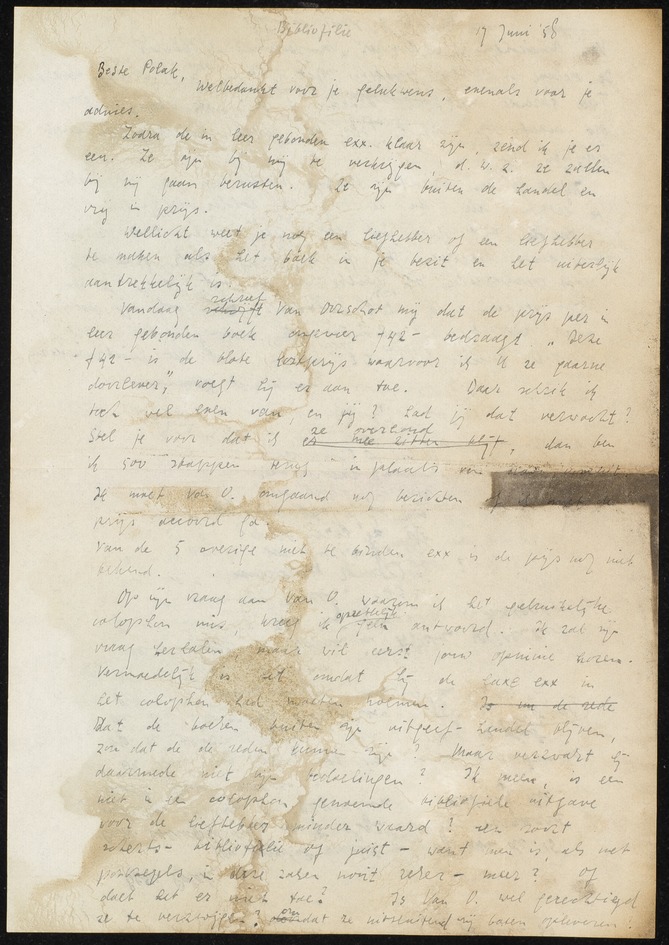 Bibliofilie
17 Juni '58
Beste Polak,
Welbedankt voor je gelukwens, evenals voor je
advies.
Zodra de in leer gebonden exx. klaar zijn, zend ik je er
een. Ze zijn bij mij te verkrijgen d.w.z. ze zullen
bij mij gaan berusten. Ze zijn buiten de handel en
vrij in prijs.
Wellicht weet je nog een liefhebber of een liefhebber
te maken als het boek in je bezit en het uiterlijk
aantrekkelijk is.
Vandaag schreef Van Oorschot mij dat de prijs per in
leer gebonden boek ongeveer f42- bedraagt. "Deze
f42- is de blote kostprijs waarvoor ik U ze gaarne
doorlever", voegt hij er aan toe. Daar schrik ik
toch wel even van, en jij? Had jij dat verwacht?
Stel je voor dat ik ze overhoud, dan ben
ik 500 stappen terug in plaats van
Ik moet van O. omgaand nog berichten of ik met de
prijs accoord ga.
Van de 5 overige niet te binden exx is de prijs nog niet
bekend.
Op mijn vraag aan Van O. waarom ik het gebruikelijke
colophon mis, kreeg ik opzettelijk geen antwoord. Ik zal mijn
vraag herhalen, maar wil eerst jouw opinie horen.
Vermoedelijk is het omdat hij de luxe exx in
het colophon had moeten noemen. Is nu de rede
Dat de boeken buiten zijn uitgeef-handel blijven,
zou dat de reden kunnen zijn? Maar verzwakt hij
daarmede niet mijn bedoelingen? Ik meen, is een
niet in een colophon genoemde bibliofiele uitgave
voor de liefhebber minder waard? een soort
scherts-bibliofilie of juist - want men is, als met
postzegels, in deze zaken nooit zeker - meer? Of
doet het er niet toe? Is Van O. wel gerechtigd
ze te verzwijgen? omdat ze uitsluitend mij baten opleveren?